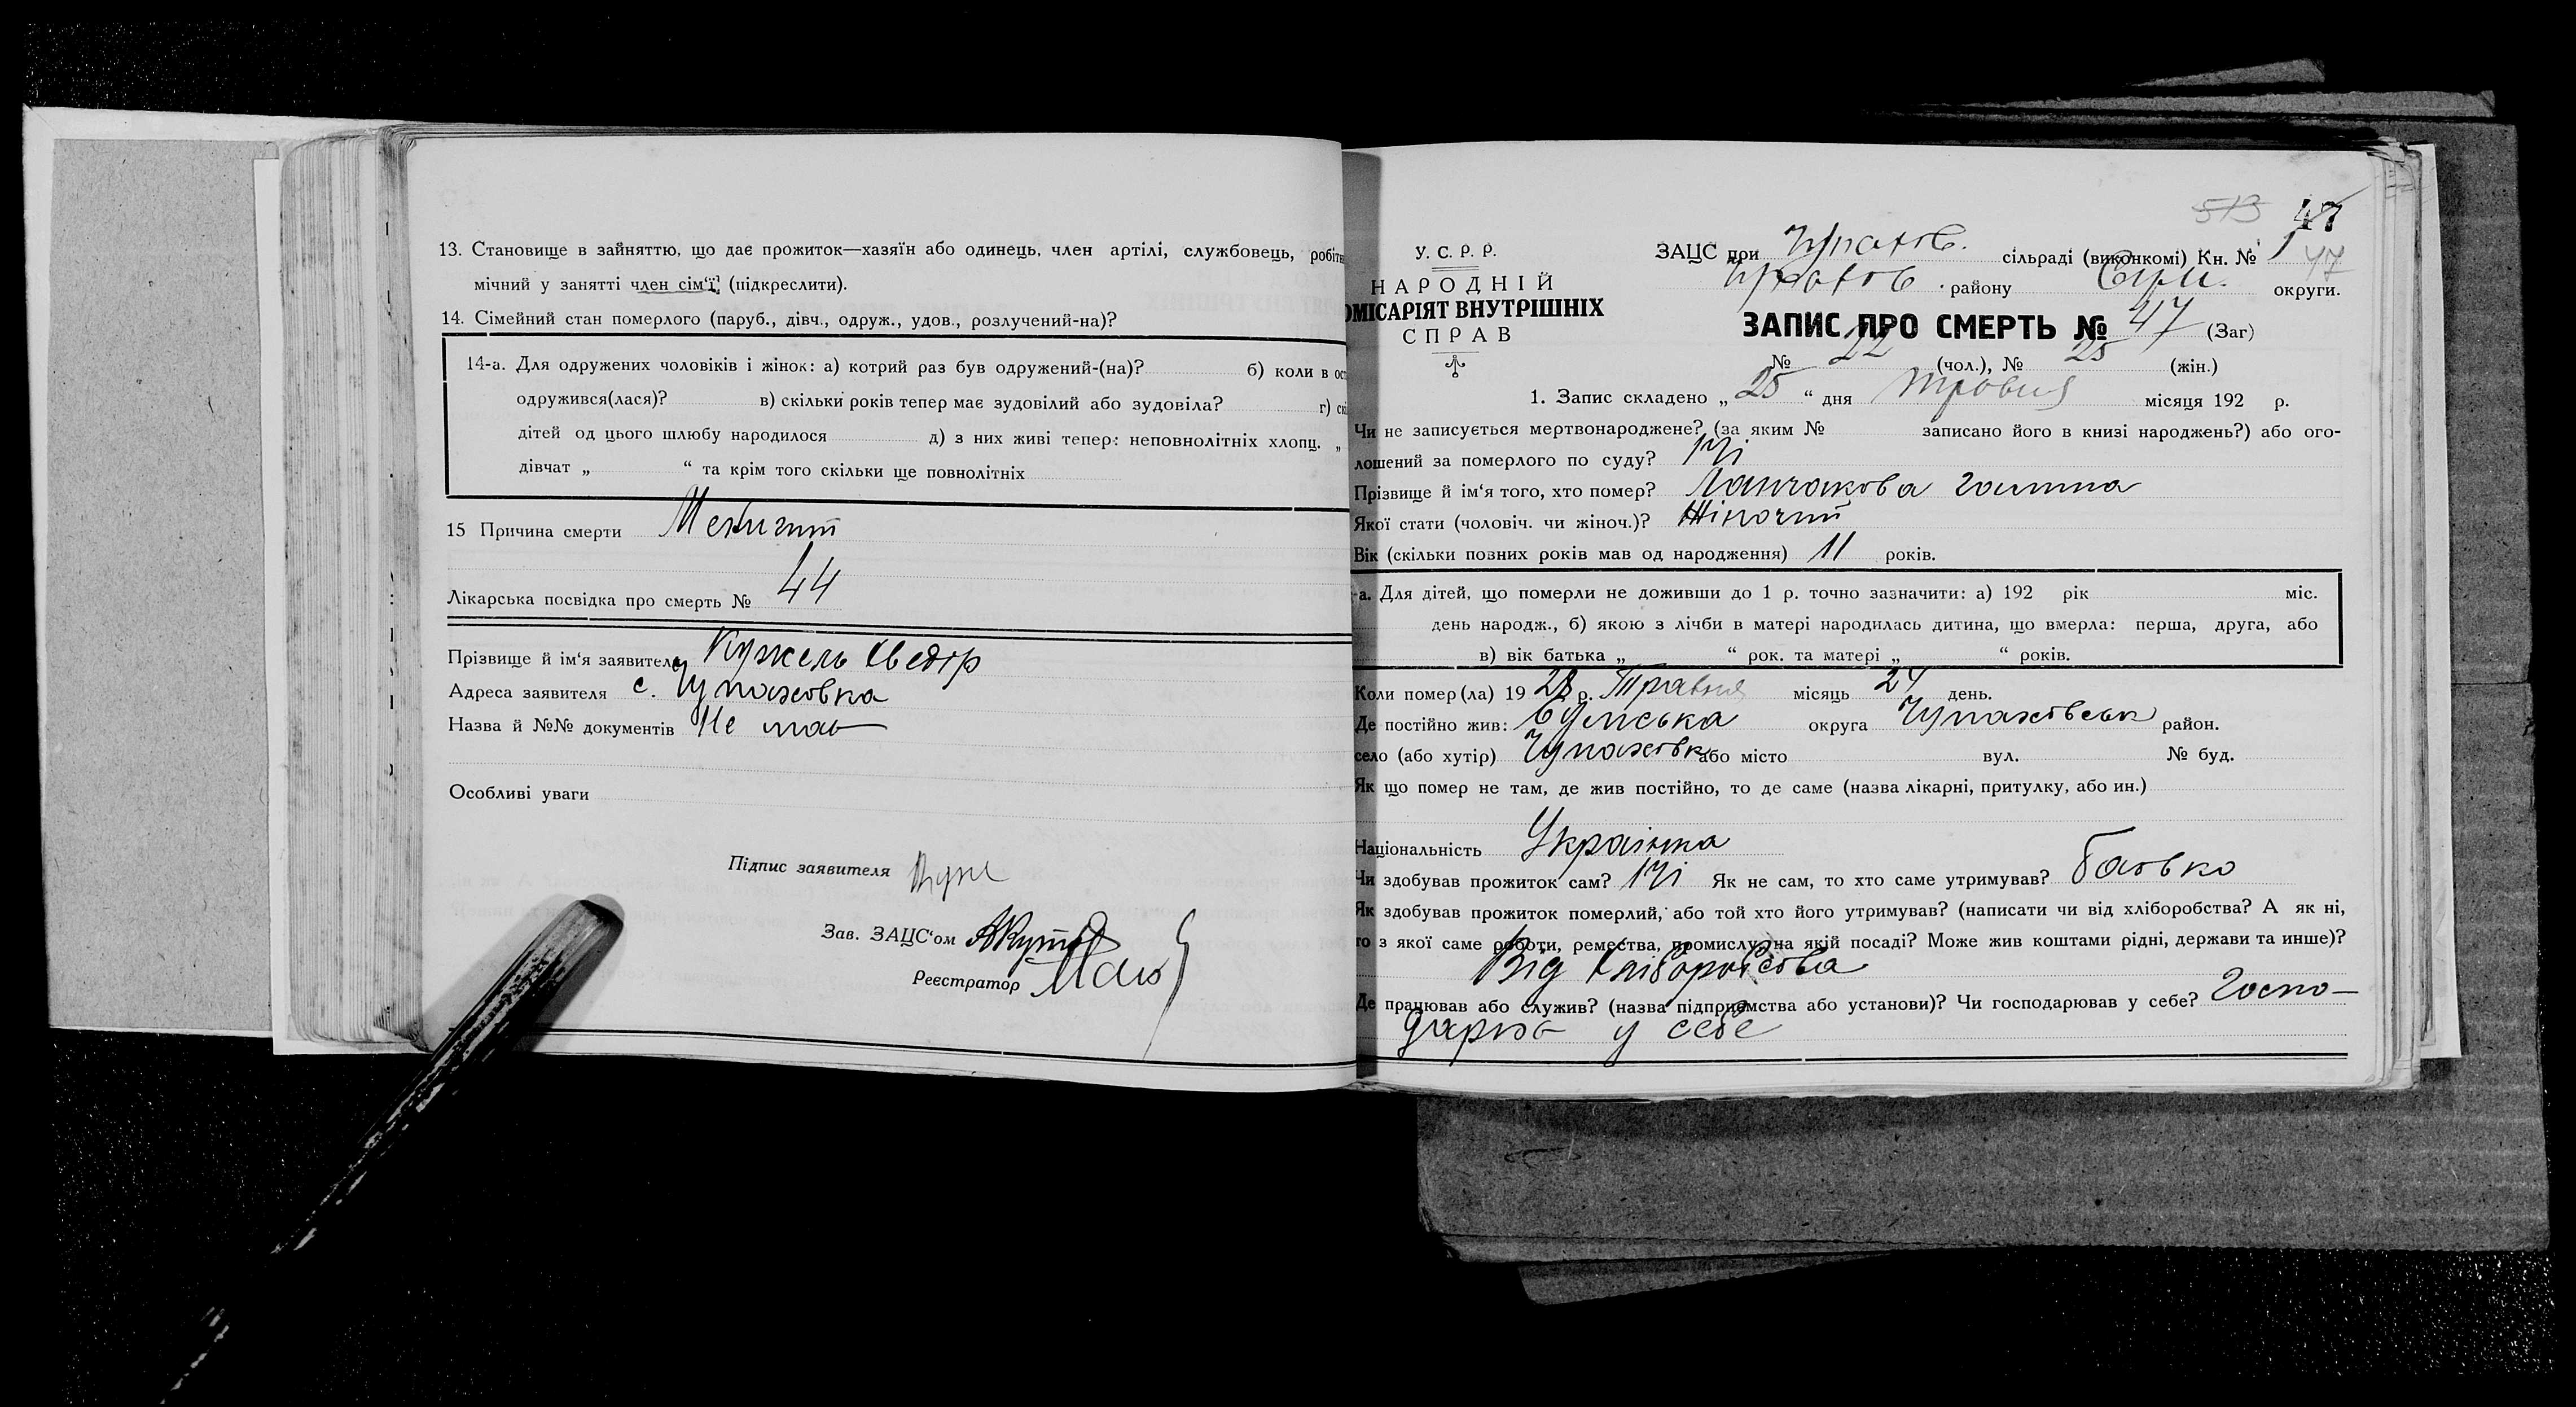 13. Становище в зайняттю, що дає прожиток—хазяїн або одинець, член артілі, службовець, робітн
мічний у занятті член сім'ї (підкреслити).
14. Сімейний стан померлого (паруб., дівч., одруж., удов., розлучений-на)?
14-а. Для одружених чоловіків і жінок: а) котрий раз був одружений-(на)? б) коли в ост
одружився(лася)? в) скільки років тепер має зудовілий або зудовіла? г) скі
дітей од цього шлюбу народилося д) з них живі тепер: неповнолітніх хлопц. „
дівчат „ “ та крім того скільки ще повнолітніх
15 Причина смерти Менигит
Лікарська посвідка про смерть № 44
Прізвище й ім'я заявителя Кужель Хведір
Адреса заявителя с. Чупаховка
Назва й №№ документів Не мав
Особливі уваги
Підпис заявителя Куже
Зав. ЗАЦС'ом
Реєстратор
513 47
У. С. Р. Р.
НАРОДНІЙ
ОМІСАРІЯТ ВНУТРІШНІХ
СПРАВ
ЗАЦС при Чупахов. сільраді (виконкомі) Кн. № 1 47
Чупахов. району Сум. округи.
ЗАПИС ПРО СМЕРТЬ № 47 (Заг)
№ 22 (чол.), № 25 (жін.)
1. Запис складено „ 25 “ дня Травня місяця 192 р.
Чи не записується мертвонароджене? (за яким № записано його в книзі народжень?) або ого-
лошений за померлого по суду? Ні
Прізвище й ім'я того, хто помер? Ланчакова Галина
Якої стати (чоловіч. чи жіноч.)? Жіночий
Вік (скільки повних років мав од народження) 11 років.
-а. Для дітей, що померли не доживши до 1 р. точно зазначити: а) 192 рік міс.
день народж., б) якою з лічби в матері народилась дитина, що вмерла: перша, друга, або
в) вік батька „ “ рок. та матері „ “ років.
Коли помер(ла) 1928 р. Травня місяць 24 день.
Де постійно жив: Сумська округа Чупахівськ район.
село (або хутір) Чупахівк або місто вул. № буд.
Як що помер не там, де жив постійно, то де саме (назва лікарні, притулку, або ин.)
Національність Українка
Чи здобував прожиток сам? Ні Як не сам, то хто саме утримував? Батько
Як здобував прожиток померлий, або той хто його утримував? (написати чи від хліборобства? А як ні,
то з якої саме роботи, ремества, промислу, на якій посаді? Може жив коштами рідні, держави та инше)?
Від хліборобства
Де працював або служив? (назва підприємства або установи)? Чи господарював у себе? Госпо-
дарка у себе